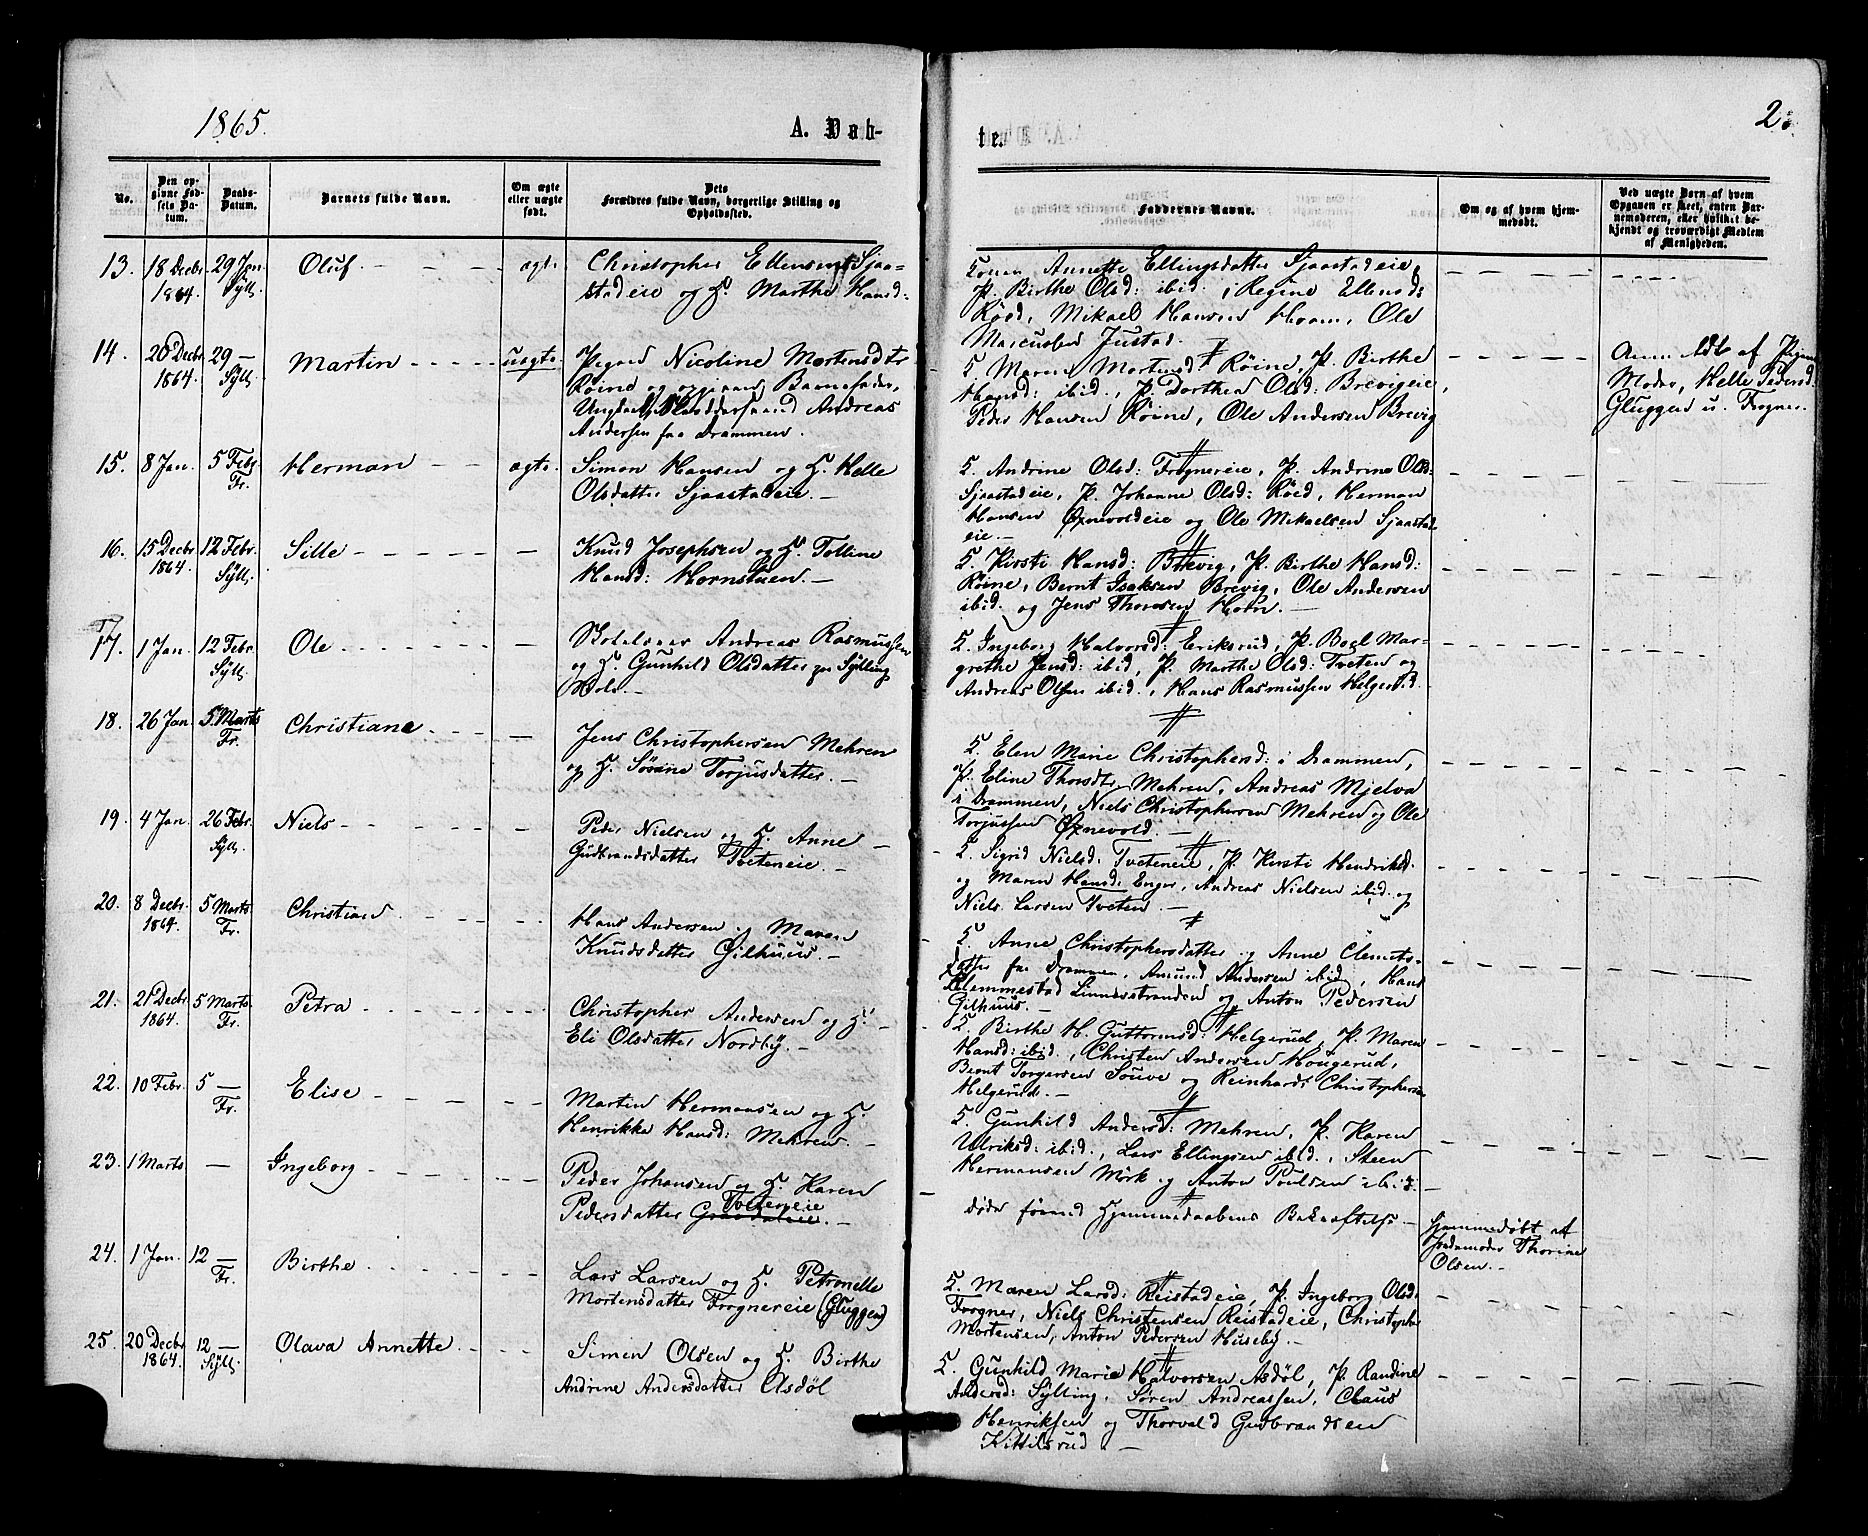 1865.
A. Døb-
te.
2.
No.
Den op-
givne Fød-
sels Da-
tum.
Daabs-
Datum.
Barnets fulde Navn.
Om ægte
eller uægte
født.
Dets
Forældres fulde Navn, borgerlige Stilling og
Opholdssted.
Faddernes Navne.
Om og af hvem hjem-
medøbt.
Ved uægte Børn af hvem
Opgaven er skeet, enten Bar-
nemoderen, eller hvilket be-
kjendt og troværdigt Medlem
af Menigheden.
13. 18 Decbr 1864. 29 Jan. Syll. Oluf ægte
Christopher Ellensen Sjaa-
stadeie og H. Marthe Hansd:
Annette Ellingsdatter Sjaastadeie,
P. Birthe Olsd: ibid., Regine Ellensd:
Røed, Mikael Hansen Hoam, Ole
Marcussen Justad.
14. 20 Decbr 1864. 29 — Syll. Martin uægte
Pigen Nicoline Mortensdtr
Røine og opgiven Barnefader,
Ungkarl Andreas
Andersen fra Drammen.
Maren Mortensd: Røine, P. Birthe
Hansd: ibid., P. Dorthea Olsd: Brevigeie,
Peder Hansen Røine, Ole Andersen Brevig
Anm. Adb af Pigens
Moder, Helle Pedersd
Gluggen u. Frogner.
15. 8 Jan. 5 Febr. Fr. Herman ægte
Simon Hansen og H. Helle
Olsdatter Sjaastadeie. —
Andrine Olsd: Frognereie, P. Andrine Olsd:
Sjaastadeie, P. Johanne Olsd: Røed, Herman
Hansen Øxnevoldeie og Ole Mikaelsen Sjaastad-
eie. —
16. 15 Decbr 1864 12 Febr. Syll. Sille —
Knud Josephsen og H. Tolline
Hansd: Hornstuen. —
Kirsti Hansd: Brevig, P. Birthe Hansd:
Røine, Bernt Isaksen Brevig, Ole Andersen
ibid. og Jens Thoresen Horn. —
17. 1 Jan. 12 Febr. Syll. Ole —
Andreas Rasmussen
og H. Gunhild Olsdatter Sylling
Hold. —
Ingeborg Halvorsd: Eriksrud, P. Boel Mar-
grethe Jensd: ibid, P. Marthe Olsd: Tveten og
Andreas Olsen ibid., Hans Rasmussen Helgerud.
18. 26 Jan. 5 Marts Fr. Christiane —
Jens Christophersen Mehren
og H. Sørine Torjusdatter. —
Elen Marie Christophersd: i Drammen,
P. Eline Thorsdtr Mehren, Andreas Mjelva
i Drammen, Niels Christophersen Mehren og Ole
Torjussen Øxnevold. —
19. 4 Jan. 26 Febr. Syll. Niels —
Peder Nielsen og H. Anne
Gudbrandsdatter Tveteneie. —
Sigrid Nielsd: Tveteneie, P. Kirsti Hendriksd.
og Maren Hansd: Enger, Andreas Nielsen ibid. og
Niels Larsen Tveten. —
20. 8 Decbr. 1864. 5 Marts Fr. Christian —
Hans Andersen, Maren
Knudsdatter Gilhuus. —
Anne Christophersdatter og Anne Clemets-
datter fra Drammen, Amund Andersen ibid, Hans
Klemmestad Linnesstranden og Anton Pedersen
Gilhuus. —
21. 21 Decbr 1864. 5 Marts Fr. Petra
Christopher Andersen og H.
Eli Olsdatter Nordby. —
Birthe H. Guttormsd: Helgerud, P. Maren
Hansd: ibid., Christen Andersen Hougerud,
Bernt Torgersen Souve og Reinhardt Christophersen
Helgerud. —
22. 10 Febr. 5 — Fr. Elise
Martin Hermansen og H.
Henrikke Hansd: Mehren. —
Gunhild Andersd: Mehren, P. Karen
Ulriksd: ibid., Lars Ellingsen ibid., Steen
Hermansen Mörk og Anton Poulsen ibid:
23. 1 Marts — Ingeborg
Peder Johansen og H. Karen
Tveteneie
Pedersdatter
døde førend Hjemmedaabens Bekræftelse —
Hjemmedøbt af
Jordemoder Thorine
Olsen. —
24. 1 Jan. 12 — Fr. Birthe
Lars Larsen og H. Petronelle
Mortensdatter Frognereie (Gluggen)
Maren Larsd: Reistadeie, P. Ingeborg Olsd:
Frogner, Niels Christensen Reistadeie, Christopher
Mortensen, Anton Pedersen Huseby. —
25. 20 Decbr 1864. 12 — Syll. Olava Annette
Simen Olsen og H. Birthe
Andrine Andersdatter Asdöl
Gunhild Marie Halvorsen Asdöl, P. Randine
Andersd: Sylling, Søren Andreassen, Claus
Henriksen og Thorvald Gudbrandsen
Kittilsrud. —